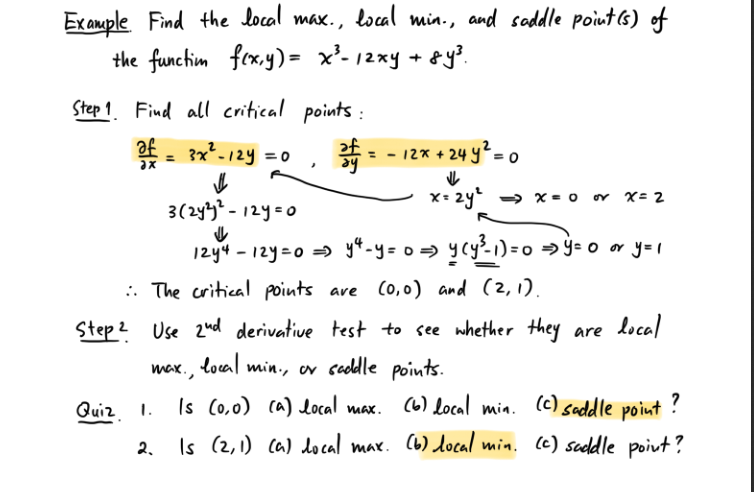 Example Find the local max., local min., and saddle point(s) of
the function f(x,y) = x³ - 12xy + 8y³.
Step 1. Find all critical points :
∂f/∂x = 3x² - 12y = 0 , ∂f/∂y = - 12x + 24y² = 0
⇓ ⇓
3(2y²)² - 12y = 0 x = 2y² ⇒ x = 0 or x = 2
⇓
12y⁴ - 12y = 0 ⇒ y⁴ - y = 0 ⇒ y(y³-1) = 0 ⇒ y = 0 or y = 1
∴ The critical points are (0,0) and (2,1).
Step 2 Use 2nd derivative test to see whether they are local
max., local min., or saddle points.
Quiz 1. Is (0,0) (a) local max. (b) local min. (c) saddle point ?
2. Is (2,1) (a) local max. (b) local min. (c) saddle point ?